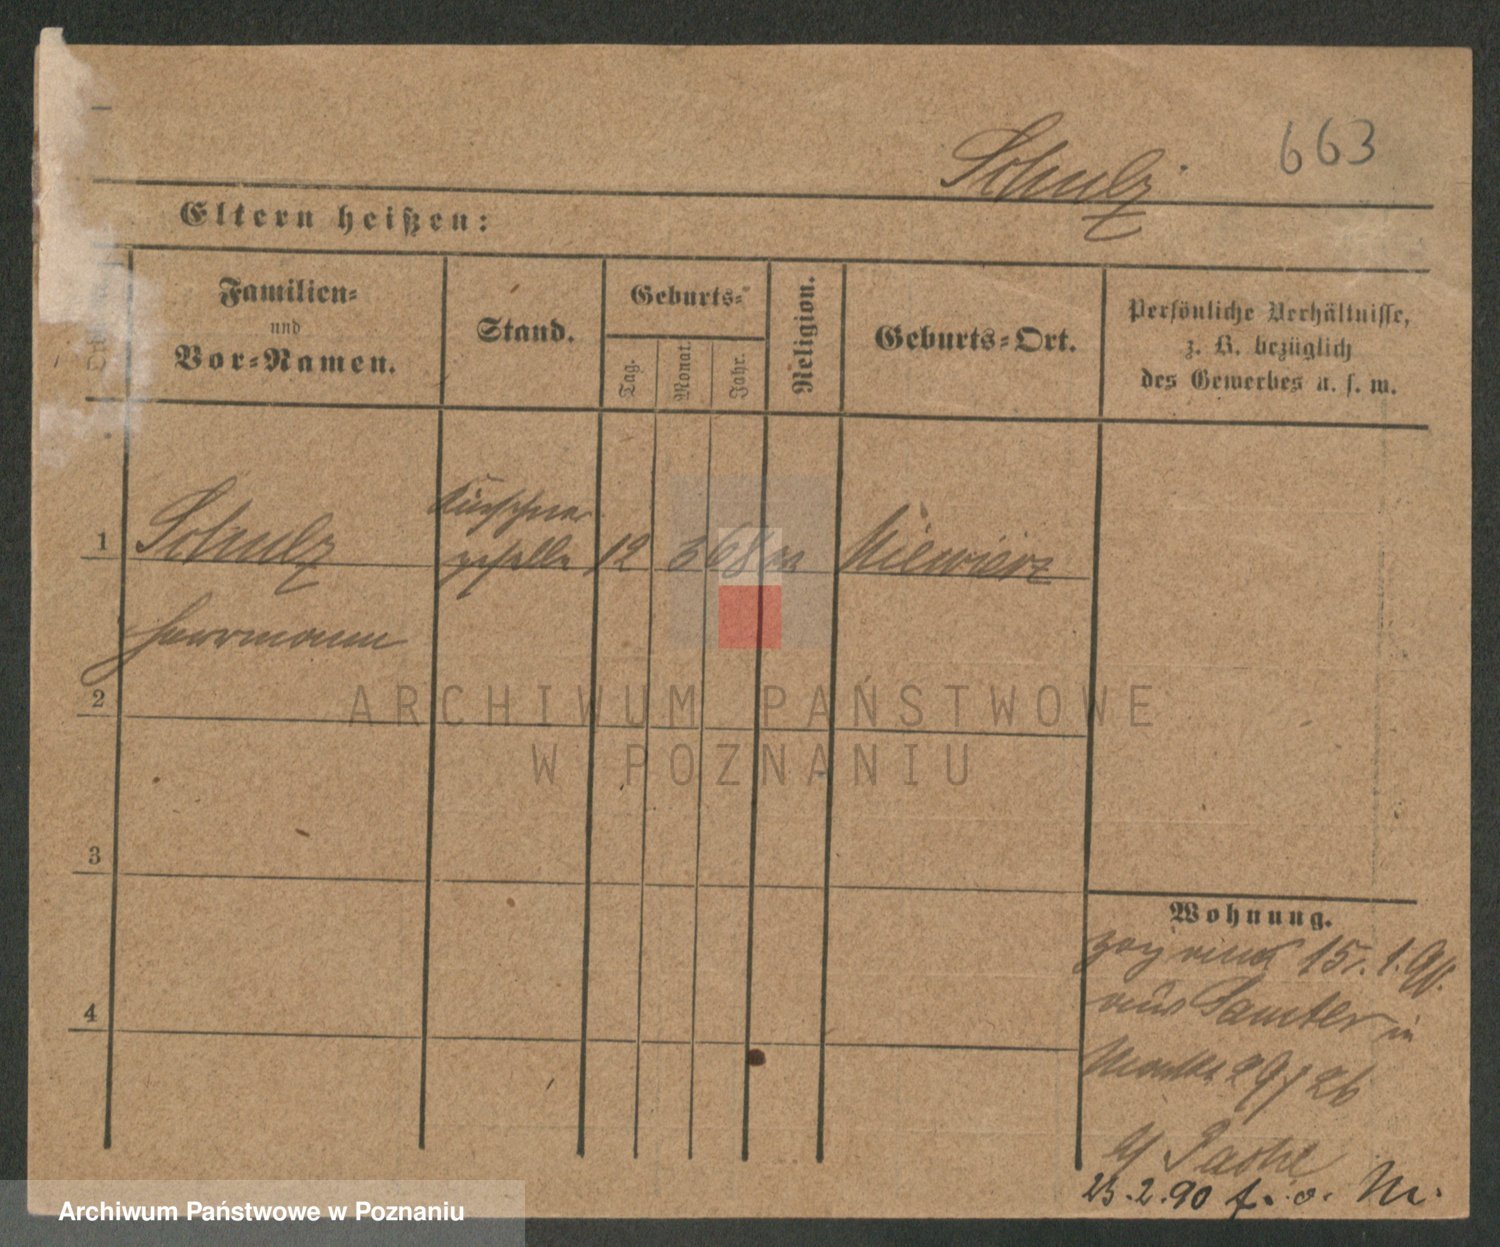 663
Schulz
Eltern heißen:
Familien=
und
Vor=Namen.
Stand.
Geburts=
Tag.
Monat.
Jahr.
Religion.
Geburts=Ort.
Persönliche Verhältnisse,
z. B. bezüglich
des Gewerbes u. s. w.
1 Schulz Kürschner
geselle 12 3 68
Herrmann
2
3
4
Wohnung.
15. 1. 90.
aus Samter in
23.2.90 f. o. M.
ARCHIWUM PAŃSTWOWE
W POZNANIU
Archiwum Państwowe w Poznaniu